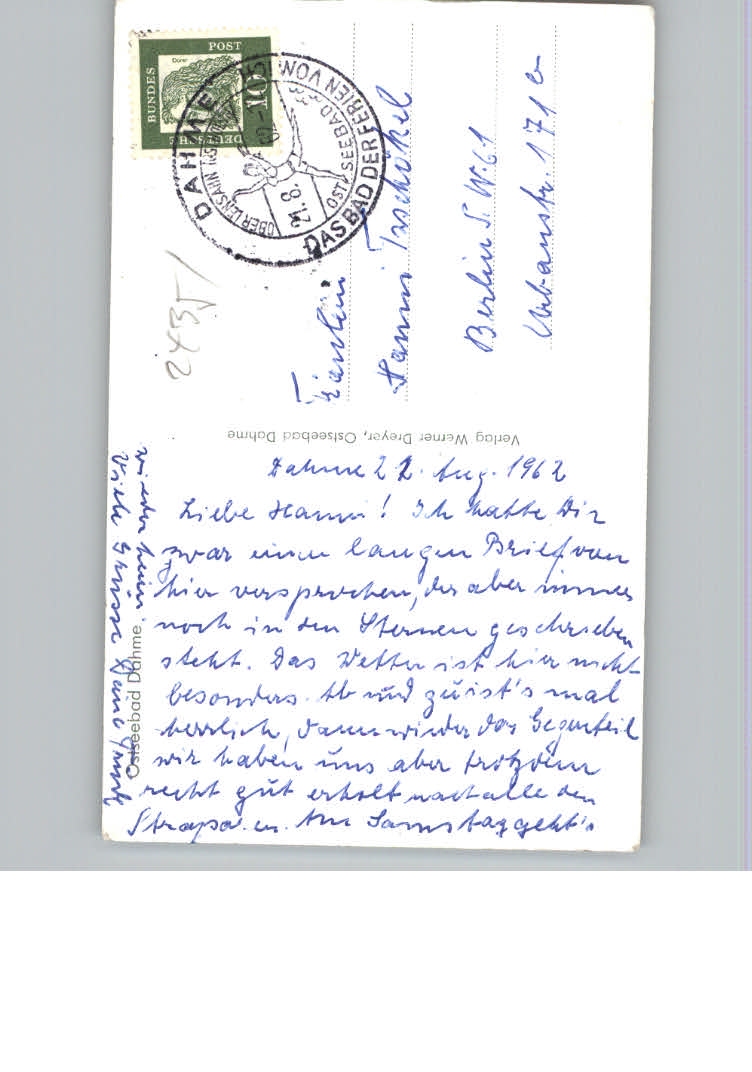 BUNDES
POST
DEUTSCHE
Dürer
10
DAHME
DAS BAD DER FERIEN VON ICH
OSTSEEBAD
21.8.
2435/
Fräulein
Hanni
Berlin S.W. 61
Urbanstr. 171
Verlag Werner Dreyer, Ostseebad Dahme
Ostseebad Dahme
Dahme 22. Aug. 1962
Liebe Hanni! Ich hatte Dir
zwar einen langen Brief von
hier versprochen, der aber immer
noch in den Sternen geschrieben
steht. Das Wetter ist hier nicht
besonders. Ab und zu ist's mal
herrlich, dann wieder das Gegenteil
wir haben uns aber trotzdem
recht gut erholt nach alle den
Strapazen. Am Samstag geht's
wieder heim.
Viele Grüsse Deine